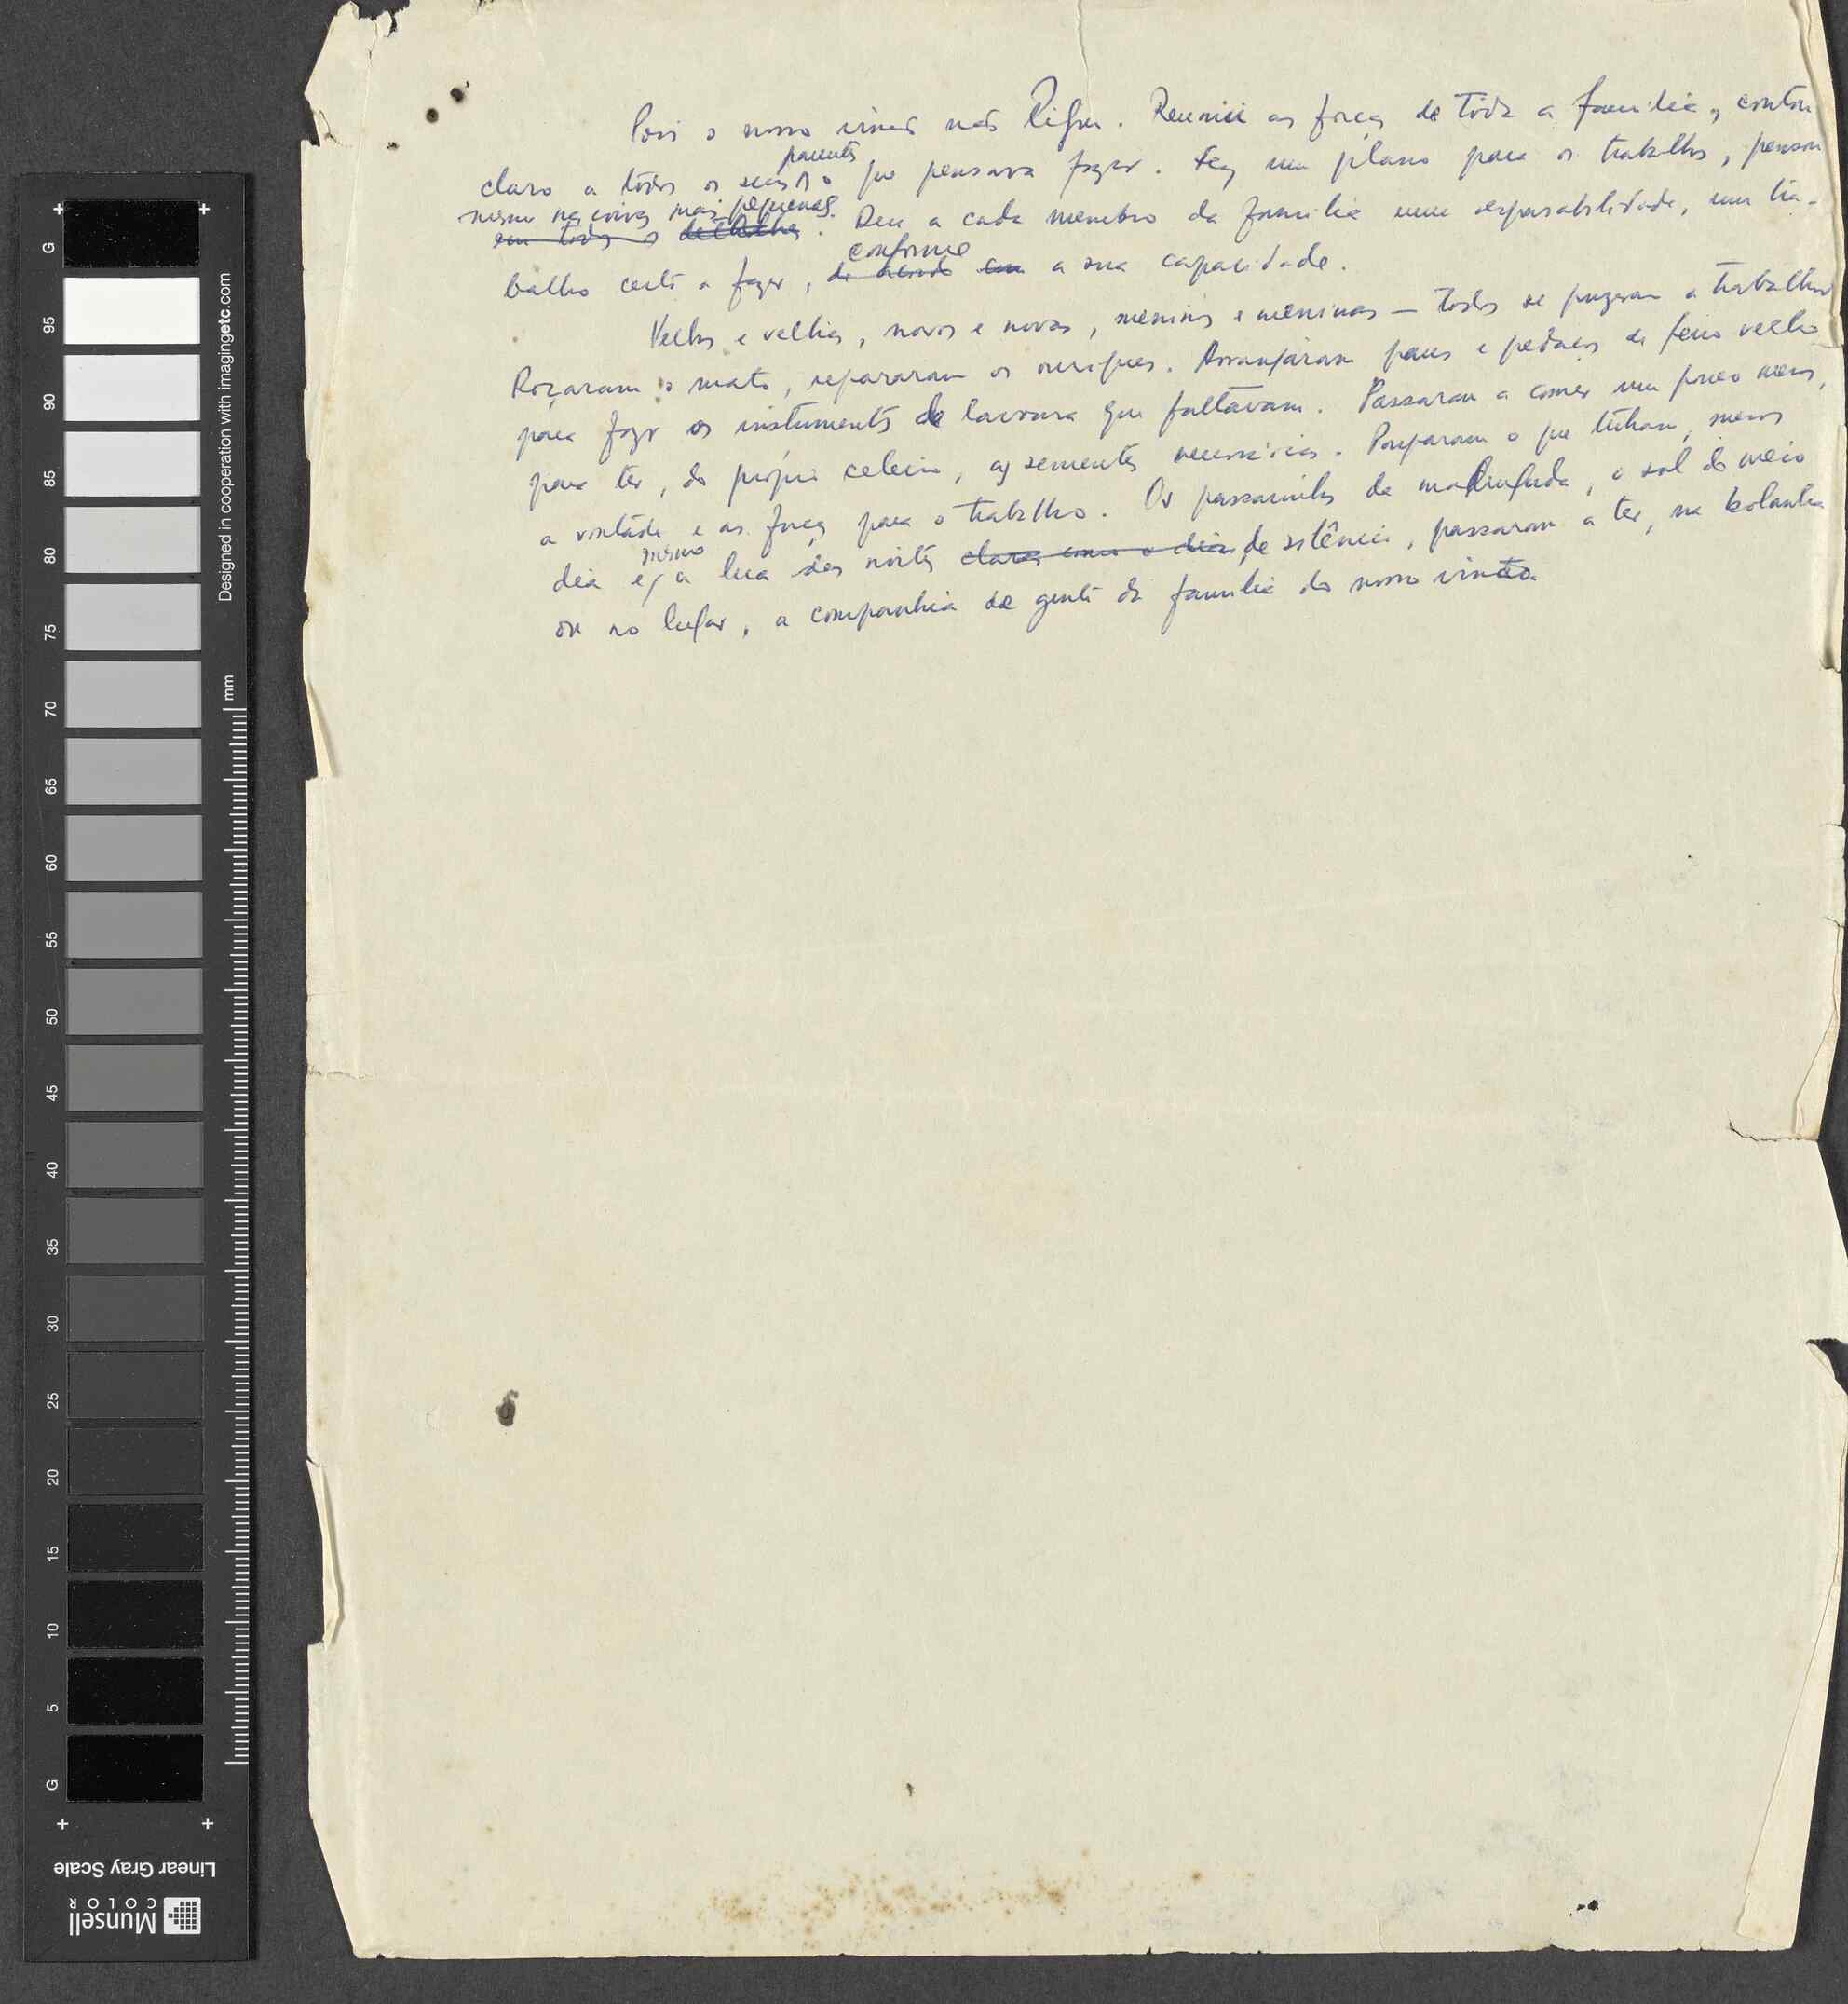 Pois o nosso irmão não ligou. Reuniu as forças de toda a família, contou
claro a todos os seus parentes o que pensava fazer. Fez um plano para os trabalhos, pensou
mesmo nas coisas mais pequenas.
em todos os detalhes. Deu a cada membro da família uma responsabilidade, um tra-
balho certo a fazer, de acordo com conforme a sua capacidade.
Velhos e velhas, novos e novas, meninos e meninas — todos se puzeram a trabalhar
Roçaram o mato, repararam os ouriques. Arranjaram paus e pedaços de ferro velho
para fazer os instrumentos de lavoura que faltavam. Passaram a comer um pouco menos,
para ter, do próprio celeiro, as sementes necessárias. Pouparam o que tinham, menos
a vontade e as forças para o trabalho. Os passarinhos da madrugada, o sol do meio
dia e mesmo a lua das noites claras como o dia, de silêncio, passaram a ter, na bolanha
ou no lugar, a companhia da gente da família do nosso irmão
Designed in cooperation with imagingetc.com
mm
G 95 90 85 80 75 70 65 60 55 50 45 40 35 30 25 20 15 10 5 G
Linear Gray Scale
Munsell
COLOR